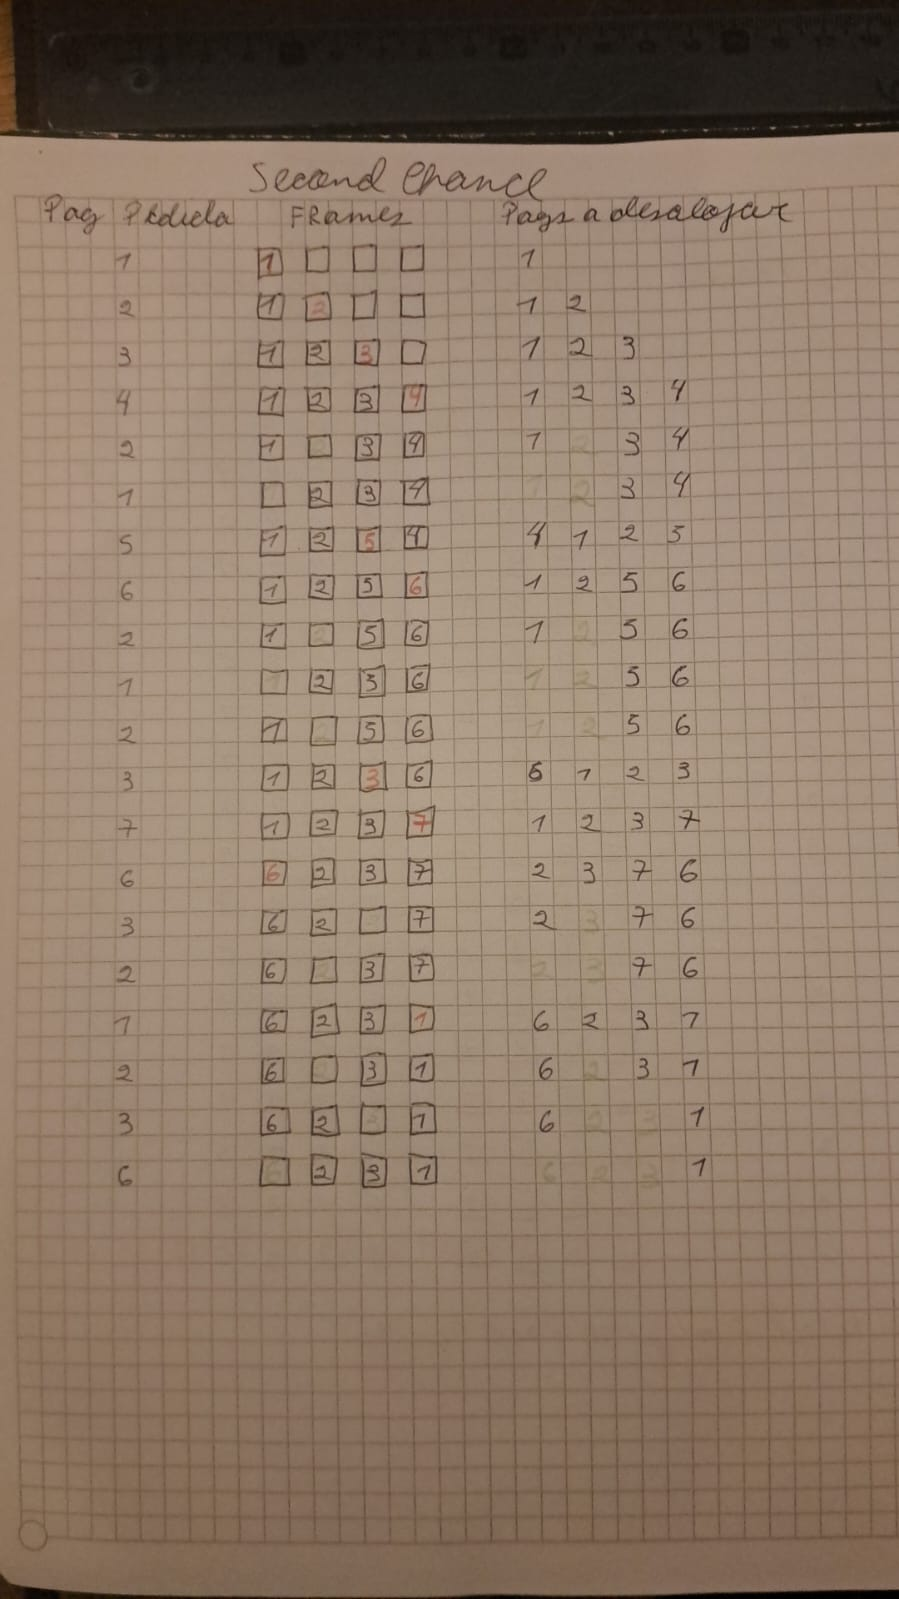 Second Chance
Pag Pedida Frames Pags a desalojar
1 1 1
2 1 2 1 2
3 1 2 3 1 2 3
4 1 2 3 4 1 2 3 4
2 1 3 4 1 2 3 4
1 2 3 4 1 2 3 4
5 1 2 5 4 4 1 2 5
6 1 2 5 6 1 2 5 6
2 1 2 5 6 1 2 5 6
1 1 2 5 6 1 2 5 6
2 1 2 5 6 1 2 5 6
3 1 2 3 6 6 1 2 3
7 1 2 3 7 1 2 3 7
6 6 2 3 7 2 3 7 6
3 6 2 7 2 3 7 6
2 6 2 3 7 2 3 7 6
1 6 2 3 1 6 2 3 1
2 6 2 3 1 6 2 3 1
3 6 2 3 1 6 2 3 1
6 6 2 3 1 6 2 3 1